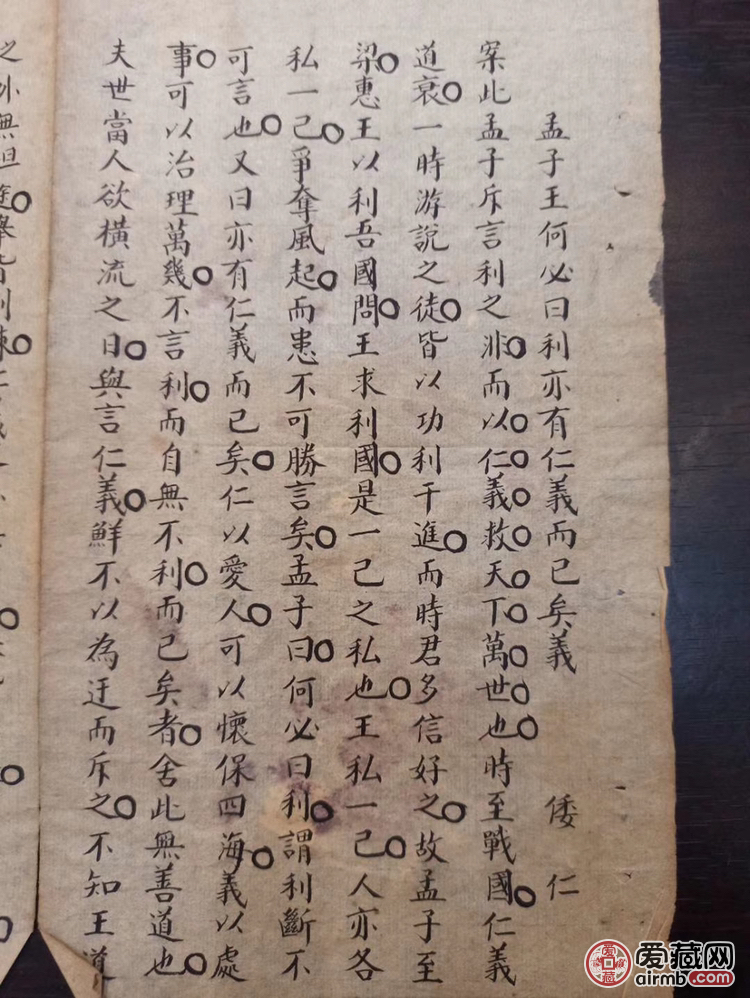 孟子王何必曰利亦有仁義而已矣義 倭仁
案此孟子斥言利之非而以仁義救天下萬世也時至戰國仁義
道衰一時游說之徒皆以功利干進而時君多信好之故孟子至
梁惠王以利吾國問王求利國是一己之私也王私一己人亦各
私一己爭奪風起而患不可勝言矣孟子曰何必曰利謂利斷不
可言也又曰亦有仁義而已矣仁以愛人可以懷保四海義以處
事可以治理萬幾不言利而自無不利而已矣者舍此無善道也
夫世當人欲橫流之日與言仁義鮮不以為迂而斥之不知王道
之外無坦途舉皆荆棘仁義
爱藏网
airmb.com